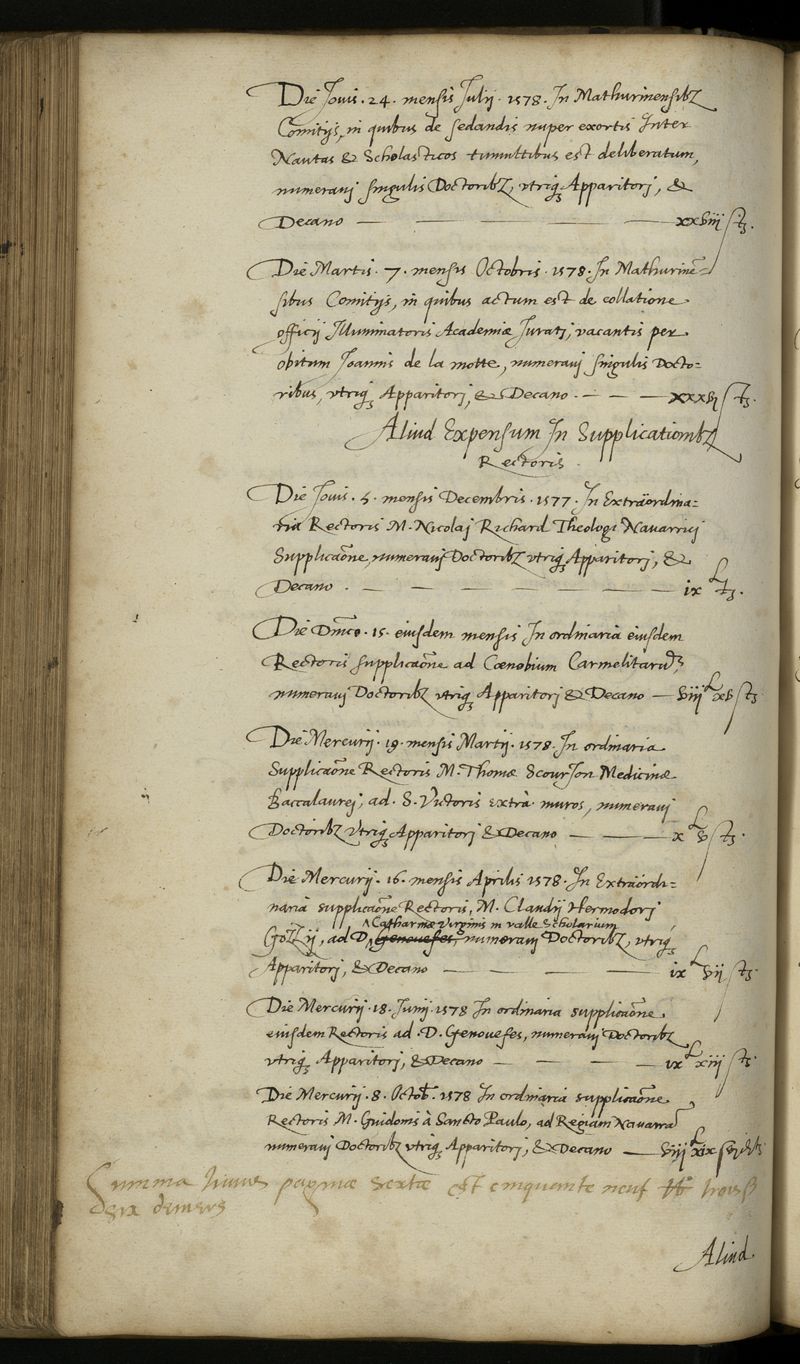 Die Jouis . 24 . mensis Julij . 1578 . In Mathurinensibꝫ
Comitijs, in quibus de sedandis nuper exortis Inter
Nautas & Scholasticos tumultibus est deliberatum,
numeraui singulis Doctoribꝫ, vtriqꝫ Apparitori, &
Decano — — — — xxviij ß tꝫ.
Die Martis . 7 . mensis Octobris . 1578 . In Mathurinē=
sibus Comitijs, in quibus actum est de collatione
officij Illuminatoris Academiæ Jurati, vacantis per
obitum Joannis de la motte, numeraui singulis Docto=
ribus, vtriqꝫ Apparitori, & Decano . — — — xxxvj ß tꝫ.
Aliud Expensum In Supplicationibꝫ
Rectoris .
Die Jouis . 5 . mensis Decembris . 1577 . In Extraordina=
ria Rectoris M. Nicolaj Richard Theologi Nauarrici
Supplicaōne, numeraui Doctoribꝫ vtriqꝫ Apparitori, &
Decano . — — — — — — ix L tꝫ.
Die Dmco . 15 . eiusdem mensis In ordinaria eiusdem
Rectoris supplicaōne ad Cœnobium Carmelitarū,
numeraui Doctoribꝫ vtriqꝫ Apparitori & Decano — viij L xv ß tꝫ
Die Mercurij . 19 . mensis Martij . 1578 . In ordinaria
Supplicaōne Rectoris M. Thomæ Scourjon Medicinæ
Baccalaurej, ad . S . Victoris extra muros, numeraui
Doctoribꝫ vtriqꝫ Apparitori & Decano — — x L v ß tꝫ.
Die Mercurij . 16 . mensis Aprilis 1578 . In Extraordi=
naria supplicaōne Rectoris, M. Claudij Hermodorj
^ Catharinæ virginis in valle Scholarium
Gozzij, ad D. ^ Genouefes, numeraui Doctoribꝫ, vtriqꝫ
Apparitori, & Decano — — — ix L vij ß tꝫ.
Die Mercurij . 18 . Junij . 1578 In ordinaria supplicaōne
eiusdem Rectoris ad . D . Genouefes, numeraui Doctoribꝫ
vtriqꝫ Apparitori, & Decano — — — ix L xiij ß tꝫ.
Die Mercurij . 8 . Octob̄ . 1578 In ordinaria supplicaōne
Rectoris M. Guidonis à Sancto Paulo, ad Regiam Nauarrā
numeraui Doctoribꝫ vtriqꝫ Apparitori, & Decano — viij L xix ß
Summa huius paginæ sextæ est cinquante neuf lb trois ß
six deniers
Aliud.